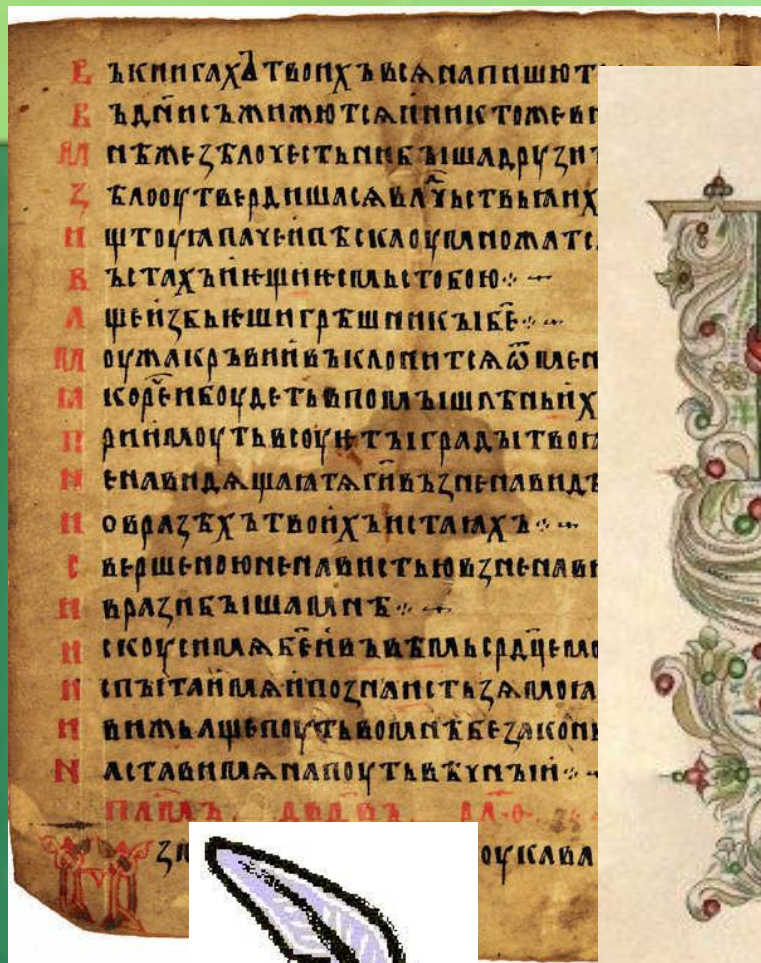 Въкнигахъ твоихъ всѧ напишют
Въ дн҃и съжижютсѧ и никтоже в
Мнѣже ꙁѣло честьни бꙑша друꙁи
Ꙁѣло оутвердишасѧ влⷣчьствьꙗ их
Иштоу ꙗ паче и пѣска оумножатс
Въстахъ и ѥще ѥсмь с тобою ⁘
Аще иꙁбьѥши грѣшникꙑ б҃е ⁘
Моужа кръви и въклонитсѧ ѿ мен
Ꙗко р҃ени боудеть в помꙑшлѣньих
Приимоуть в соуѥтꙑ градꙑ твоꙗ
Ненавидѧщаꙗ тѧ г҃и въꙁненавидѣ
И о враꙁѣхъ твоихъ истаꙗхъ ⁘
Свершеною ненавистью вꙁненави
И враꙁи бꙑша мнѣ ⁘
Искоуси мѧ б҃е и в вѣмь срд҃це мо
Испꙑтаи мѧ и поꙁнаи стьꙁѧ моꙗ
Ивижь аще поуть во мнѣ беꙁакон
Настави мѧ на поуть вѣчнꙑи ⁘
оукава